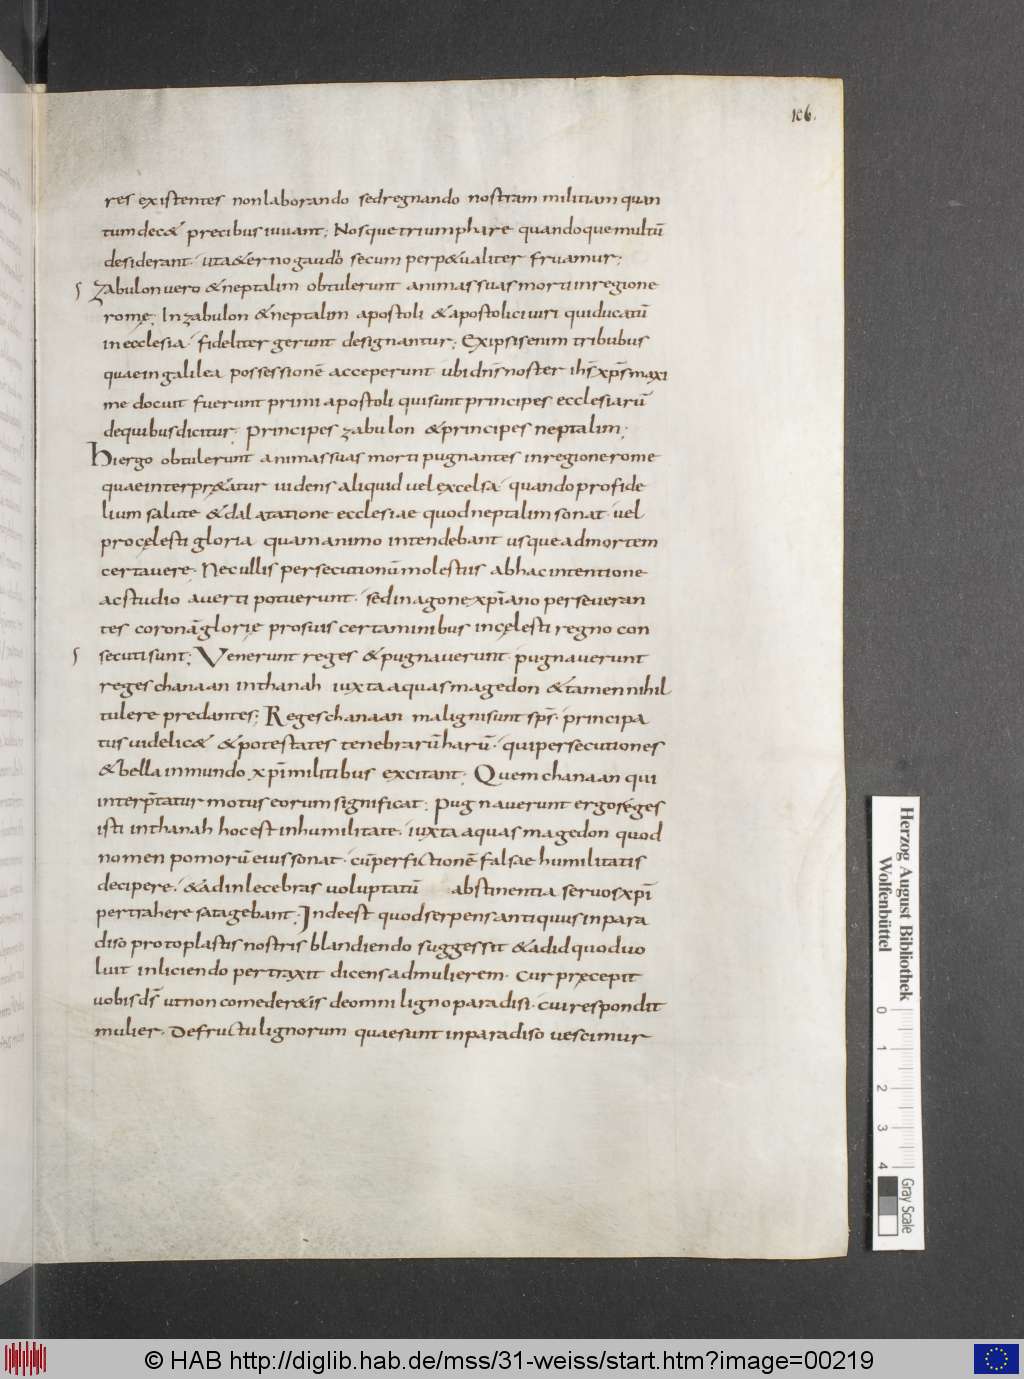 106.
res existentes non laborando sed regnando nostram militiam quan
tum dec& precibus iuuant; Nosque triumphare quandoque multū
desiderant. ut a&erno gaudio secum perp&ualiter fruamur;
Zabulon uero & neptalim obtulerunt animas suas morti in regione
romę; In zabulon & neptalim apostoli & apostolici uiri qui ducatū
in ecclesia. fideliter gerunt designantur; Ex ipsis enim tribubus
quae in galilea possessionē acceperunt ubi dn̄s noster ihs̄ xp̄s maxi
me docuit fuerunt primi apostoli qui sunt principes ecclesiarū
de quibus dicitur; principes zabulon & principes neptalim;
Hi ergo obtulerunt animas suas morti pugnantes in regione rome
quae interpr&atur uidens aliquid uel excelsa. quando pro fide
lium salute & dalatatione ecclesiae quod neptalim sonat. uel
pro cęlesti gloria quam animo intendebant usque ad mortem
certauere. Nec ullis persecutionū molestiis ab hac intentione
ac studio auerti potuerunt. sed in agone xp̄iano perseueran
tes coronā glorię pro suis certaminibus in cęlesti regno con
secuti sunt; Venerunt reges & pugnauerunt. pugnauerunt
reges chanaan in thanah iuxta aquas magedon & tamen nihil
tulere predantes; Reges chanaan maligni sunt sps̄. principa
tus uidelic& & potestates tenebrarū harū. qui persecutiones
& bella in mundo xp̄i militibus excitant. Quem chanaan qui
interp̄tatur motus eorum significat; Pugnauerunt ergo reges
isti in thanah hoc est in humilitate. iuxta aquas magedon quod
nomen pomorū eius sonat. cū perfictionē falsae humilitatis
decipere. & ad inlecebras uoluptatū abstinentia seruos xp̄i
pertrahere satagebant; Inde est quod serpens antiquus in para
diso protoplastis nostris blandiendo suggessit & ad id quod uo
luit inliciendo pertraxit dicens ad mulierem. Cur pręcepit
uobis ds̄ ut non comeder&is de omni ligno paradisi. cui respondit
mulier. De fructu lignorum quae sunt in paradiso uescimur
Herzog August Bibliothek
Wolfenbüttel
0 1 2 3 4
Gray Scale
© HAB http://diglib.hab.de/mss/31-weiss/start.htm?image=00219